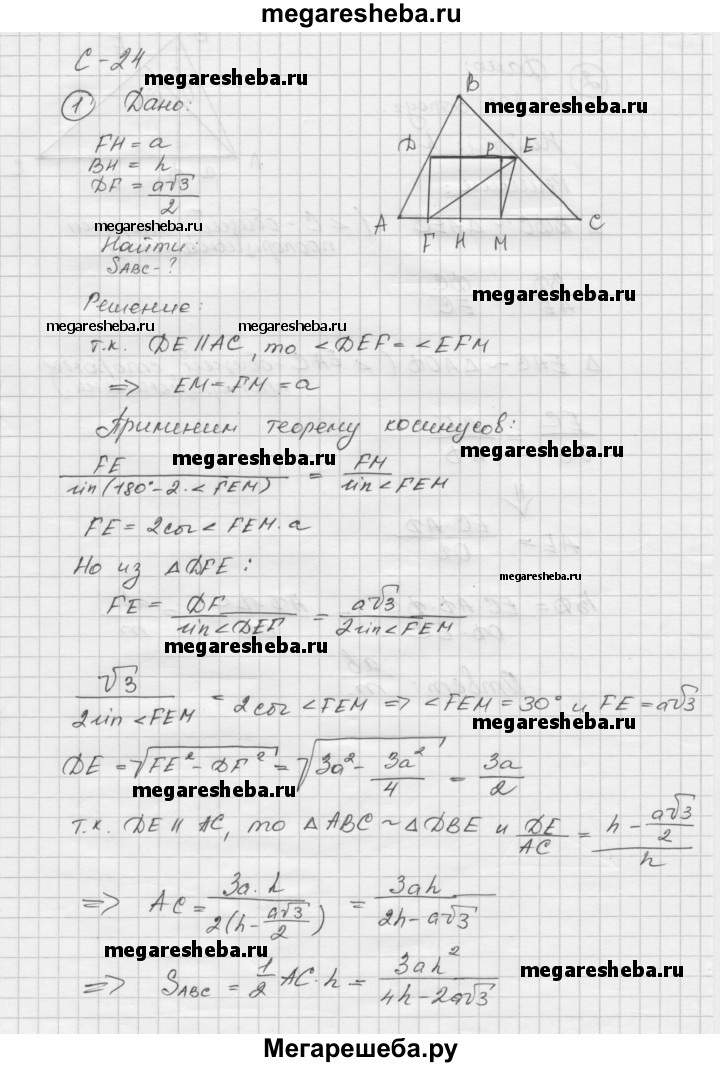 megaresheba.ru
С-24
megaresheba.ru
megaresheba.ru
① Дано:
B
D P E
A F H M C
FH = a
BH = h
DF = a√3/2
megaresheba.ru
Найти:
S_ABC - ?
megaresheba.ru
Решение:
megaresheba.ru megaresheba.ru megaresheba.ru
т.к. DE || AC, то ∠DEF = ∠EFM
=> EM = FM = a
Применим теорему косинусов:
megaresheba.ru megaresheba.ru
FE/sin(180° - 2·∠FEM) = FM/sin∠FEM
FE = 2cos∠FEM·a
Но из △DFE:
megaresheba.ru
FE = DF/sin∠DEF = a√3/2sin∠FEM
megaresheba.ru
√3/2sin∠FEM = 2cos∠FEM => ∠FEM = 30° и FE = a√3
megaresheba.ru
DE = √FE² - DF² = √3a² - 3a²/4 = 3a/2
megaresheba.ru
т.к. DE || AC, то △ABC ~ △DBE и DE/AC = h - a√3/2 / h
=> AC = 3a·h/2(h - a√3/2) = 3ah/2h - a√3
megaresheba.ru
megaresheba.ru
=> S_ABC = 1/2 AC·h = 3ah²/4h - 2a√3
Мегарешеба.ру